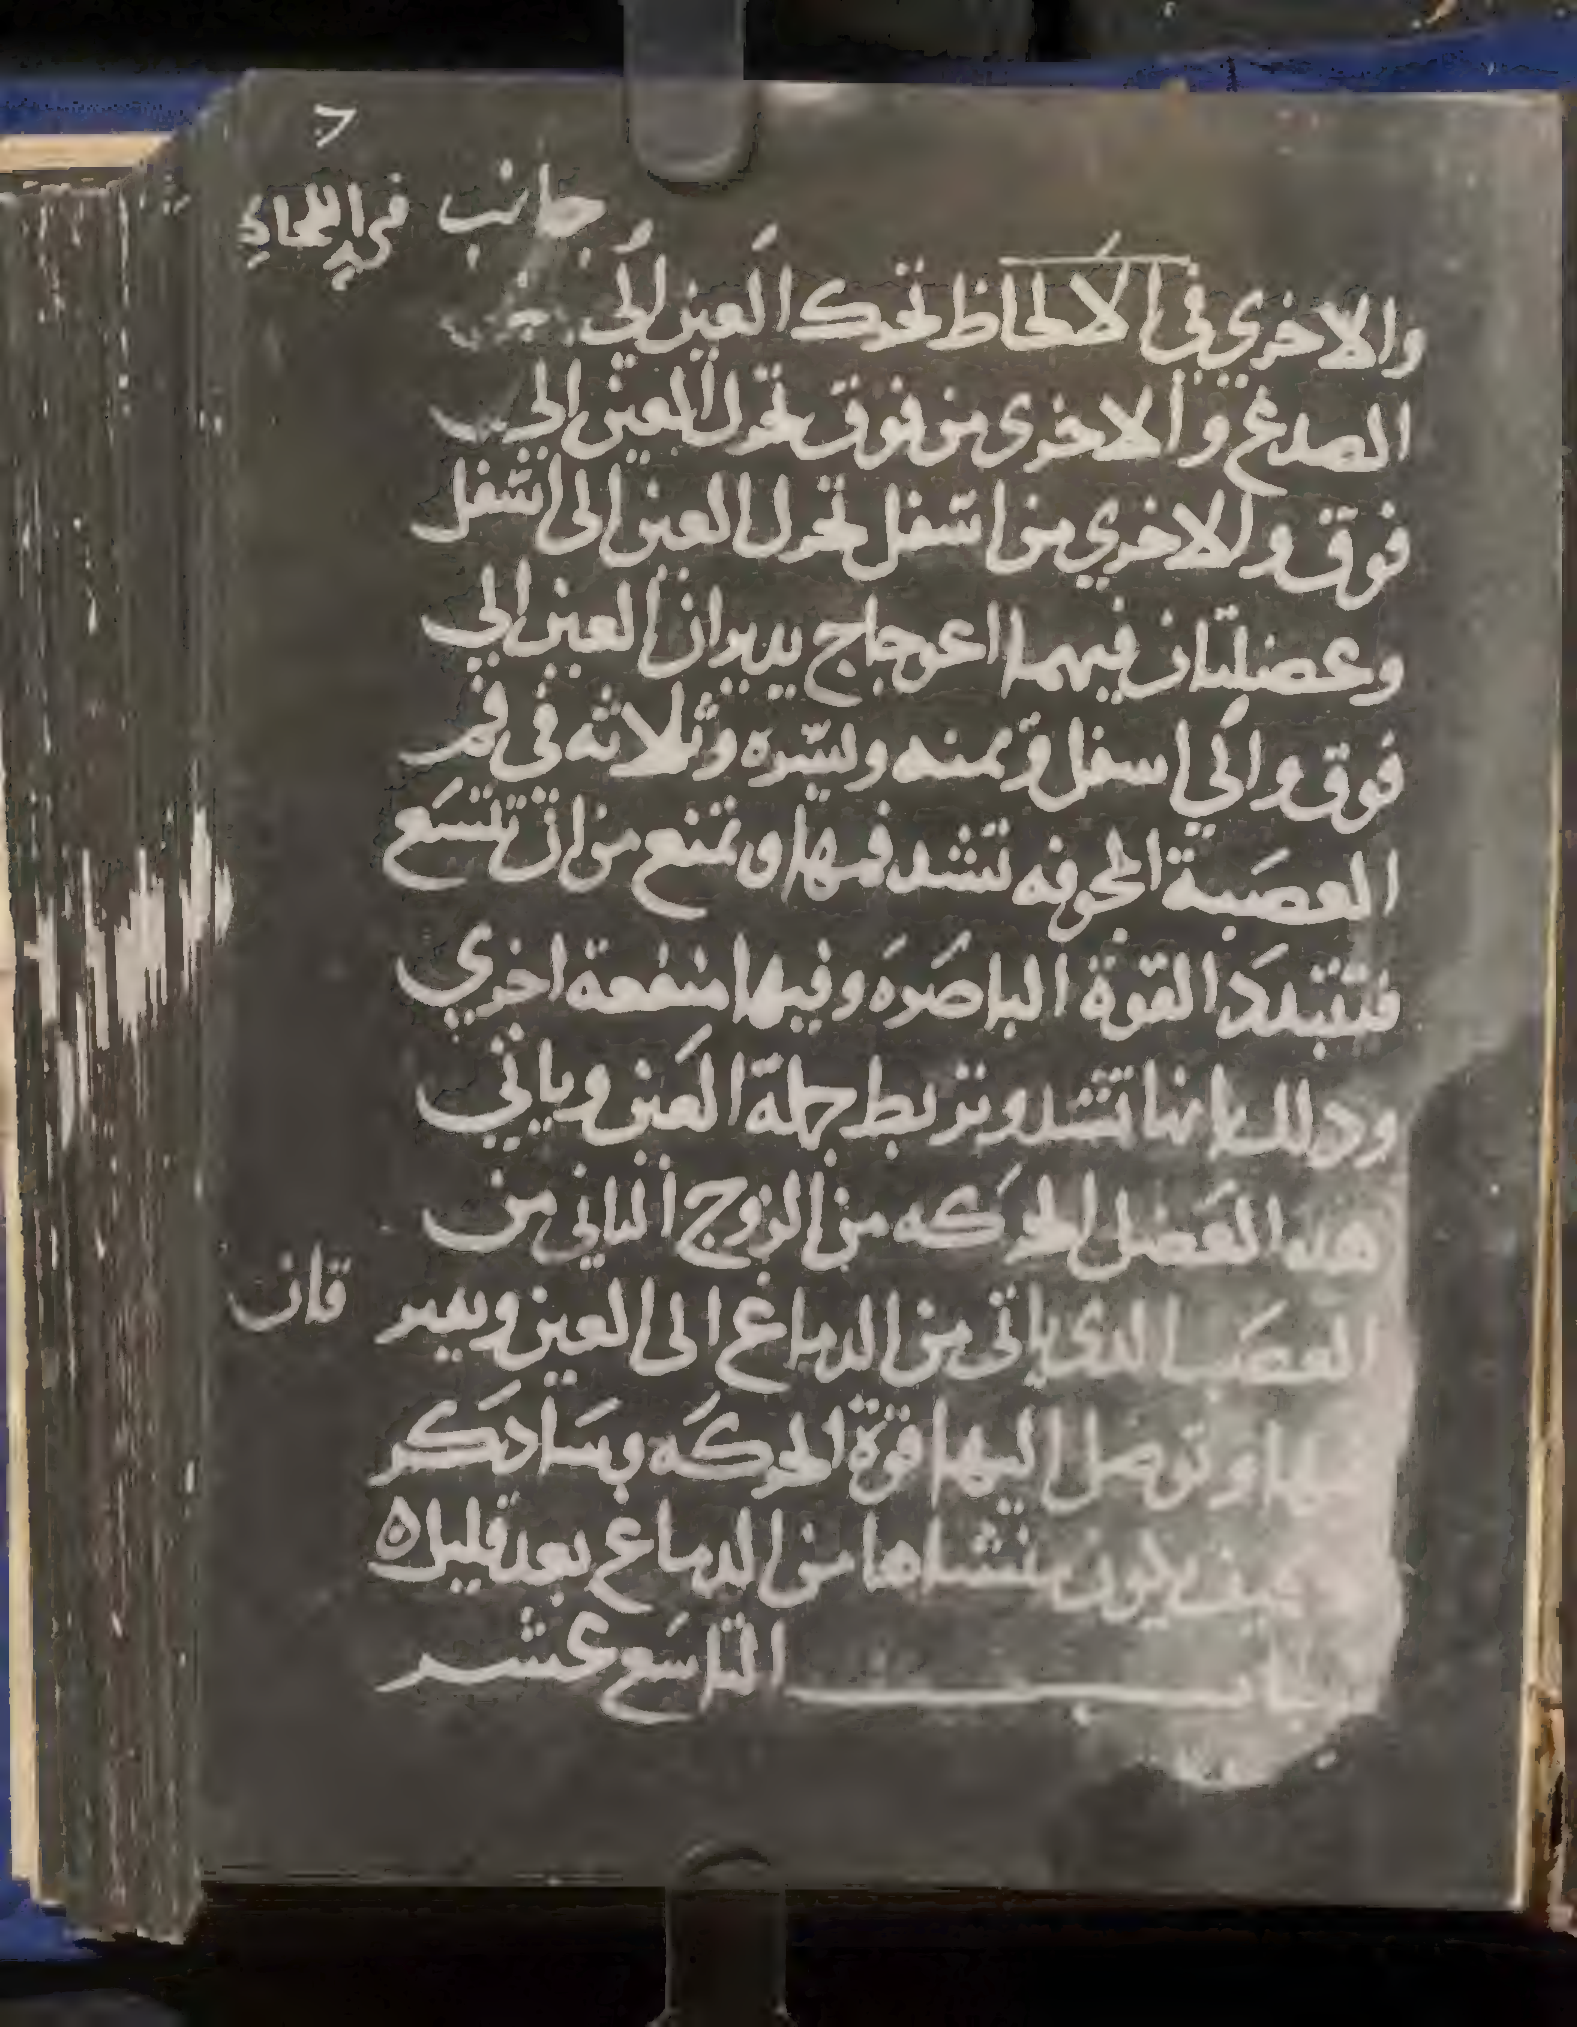 جانب
والاخري في الالحاظ تحرك العين الي
الصدغ والاخرى من فوق تحرك العين الي
فوق والاخري من اسفل تحرك العين الى اسفل
وعضلتان فيهما اعوجاج يديران العين الي
فوق والي اسفل ويمنه ويسره وثلاثه في فم
العصبة المجوفه تشد فمها وتمنع من ان تتسع
فتتبدد القوة الباصره وفيها منفعة اخري
ودلك انها تشد وتربط جملة العين وياتي
هدا العضل الحركه من الزوج الثاني من
العصب الدى ياتى من الدماغ الى العين
وتوصل اليها قوة الحركه وسادكر
كيف يكون منشاها من الدماغ بعد قليل ه
الباب التاسع عشر